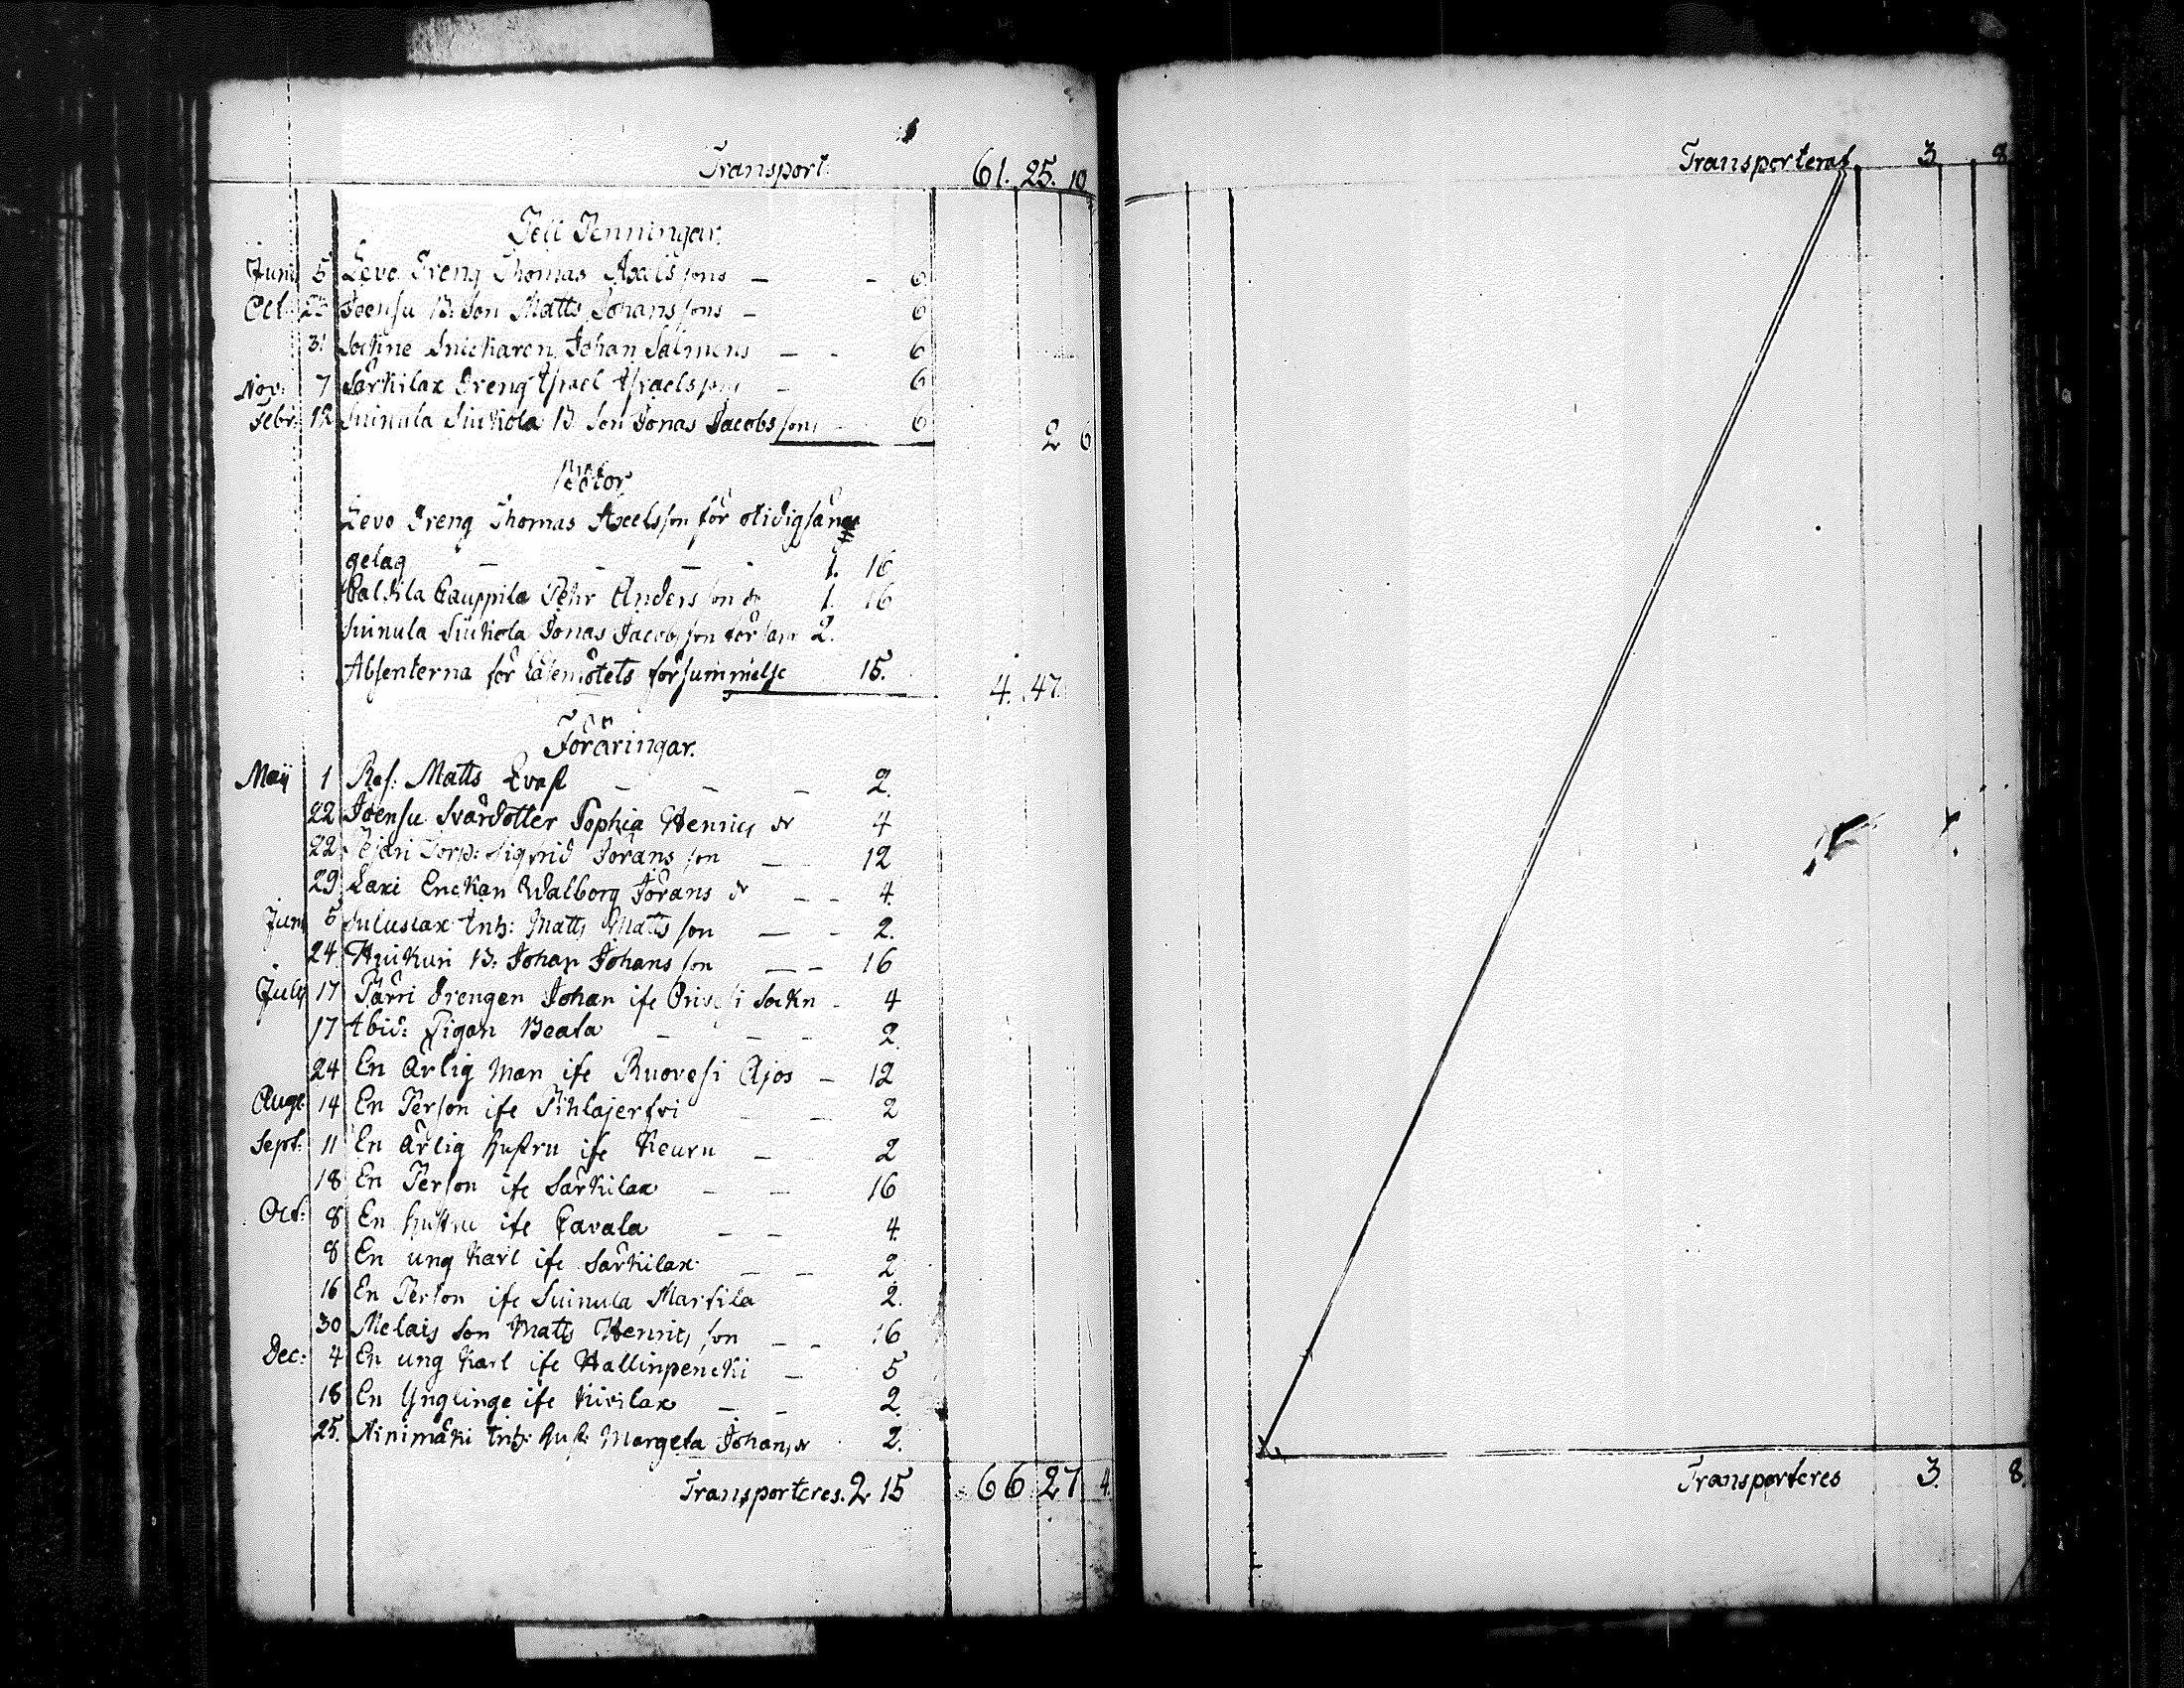 Transport. 61. 25. 10
Tell Penningar.
Juni 5 Levo Dreng Thomas Axelssons — - 6
Oct. 23 Joensu B: Son Matts Johanssons — 6
31 Sockne Snickaren Johan Salmens — - 6
Nov: 7 Särkilax Dreng Israel Israelssons — 6
Febr: 12 Suinula Siukola B. Son Jonas Jacobssons 6 2 6
Böter
Levo Dreng Thomas Axelsson för otidigsänge
gelag — - — - 1. 16
Pehr Andersson do 1. 16
Suinula Siukola Jonas Jacobsson för 2.
Absenterna för Läsemötets försummelse 15. 4. 47.
Föräringar.
Maij 1 Ref: Matts Qvast — - — 2.
22 Joensu Svärdotter Sophia Henrics dr 4
22 Torp: Sigfrid Jöransson — 12
29 Laxi Enckan Walborg Jörans dr — - 4.
Juni 5 Suluslax Inh: Matts Mattsson — - 2.
24 Huikuri B: Johan Johansson — - 16
July 17 Pärri Drengen Johan ifr Orivesi Sockn - 4
17 Ibid: Pigan Beata — - - 2.
24 En ärlig Man ifr Ruovesi Ajos — 12
Aug: 14 En Person ifr Pihlajerfvi — 2
Sept: 11 En ärlig hustru ifr Keuru — 2
18 En Person ifr Särkilax — - 16
Oct: 8 En hustru ifr Pavala — - 4.
8 En ung Karl ifr Särkilax — - 2
16 En Person ifr Suinula Martila 2.
30 Melais Son Matts Henricsson — - 16
Dec: 4 En ung Karl ifr Hallinpencki — 5
18 En Ynglinge ifr Kivilax — - 2.
25. Ninimäki Inh: Hust: Margeta Johans dr 2.
Transporteres. 2 15 66 27 4.
Transporterat 3 8
Transporteres 3. 8.